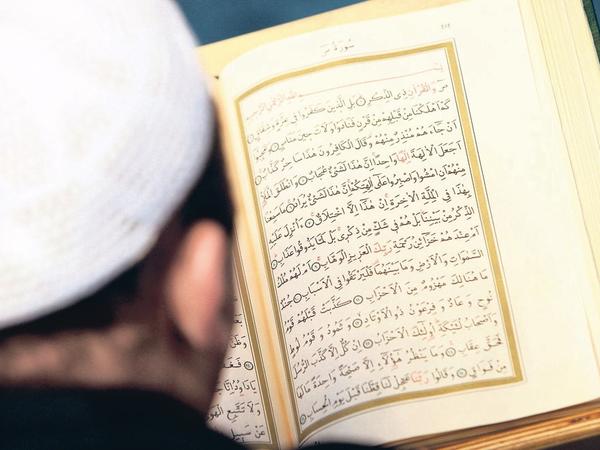 سُورَةُ صٓ
صٓ وَالْقُرْاٰنِ ذِى الذِّكْرِ بَلِ الَّذينَ كَفَرُوا فى عِزَّةٍ وَشِقَاقٍ
كَمْ اَهْلَكْنَا مِنْ قَبْلِهِمْ مِنْ قَرْنٍ فَنَادَوْا وَلَاتَ حينَ مَنَاصٍ وَعَجِبُوا
اَنْ جَاءَهُمْ مُنْذِرٌ مِنْهُمْ وَقَالَ الْكَافِرُونَ هٰذَا سَاحِرٌ كَذَّابٌ
اَجَعَلَ الْاٰلِهَةَ اِلٰهًا وَاحِدًا اِنَّ هٰذَا لَشَىْءٌ عُجَابٌ وَانْطَلَقَ الْمَلَاُ
مِنْهُمْ اَنِ امْشُوا وَاصْبِرُوا عَلٰى اٰلِهَتِكُمْ اِنَّ هٰذَا لَشَىْءٌ يُرَادُ مَا سَمِعْنَا
بِهٰذَا فِى الْمِلَّةِ الْاٰخِرَةِ اِنْ هٰذَا اِلَّا اخْتِلَاقٌ ءَاُنْزِلَ عَلَيْهِ
الذِّكْرُ مِنْ بَيْنِنَا بَلْ هُمْ فى شَكٍّ مِنْ ذِكْرى بَلْ لَمَّا يَذُوقُوا عَذَابِ
اَمْ عِنْدَهُمْ خَزَائِنُ رَحْمَةِ رَبِّكَ الْعَزيزِ الْوَهَّابِ اَمْ لَهُمْ مُلْكُ
السَّمٰوَاتِ وَالْاَرْضِ وَمَا بَيْنَهُمَا فَلْيَرْتَقُوا فِى الْاَسْبَابِ جُنْدٌ
مَا هُنَالِكَ مَهْزُومٌ مِنَ الْاَحْزَابِ كَذَّبَتْ قَبْلَهُمْ قَوْمُ
نُوحٍ وَعَادٌ وَفِرْعَوْنُ ذُو الْاَوْتَادِ وَثَمُودُ وَقَوْمُ لُوطٍ
وَاَصْحَابُ لْئَيْكَةِ اُولٰئِكَ الْاَحْزَابُ اِنْ كُلٌّ اِلَّا كَذَّبَ الرُّسُلَ
فَحَقَّ عِقَابِ وَمَا يَنْظُرُ هٰؤُلَاءِ اِلَّا صَيْحَةً وَاحِدَةً مَا لَهَا
مِنْ فَوَاقٍ وَقَالُوا رَبَّنَا عَجِّلْ لَنَا قِطَّنَا قَبْلَ يَوْمِ الْحِسَابِ
وَلَا تَتَّبِعِ الْهَوٰى
عَنْ سَبيلِ